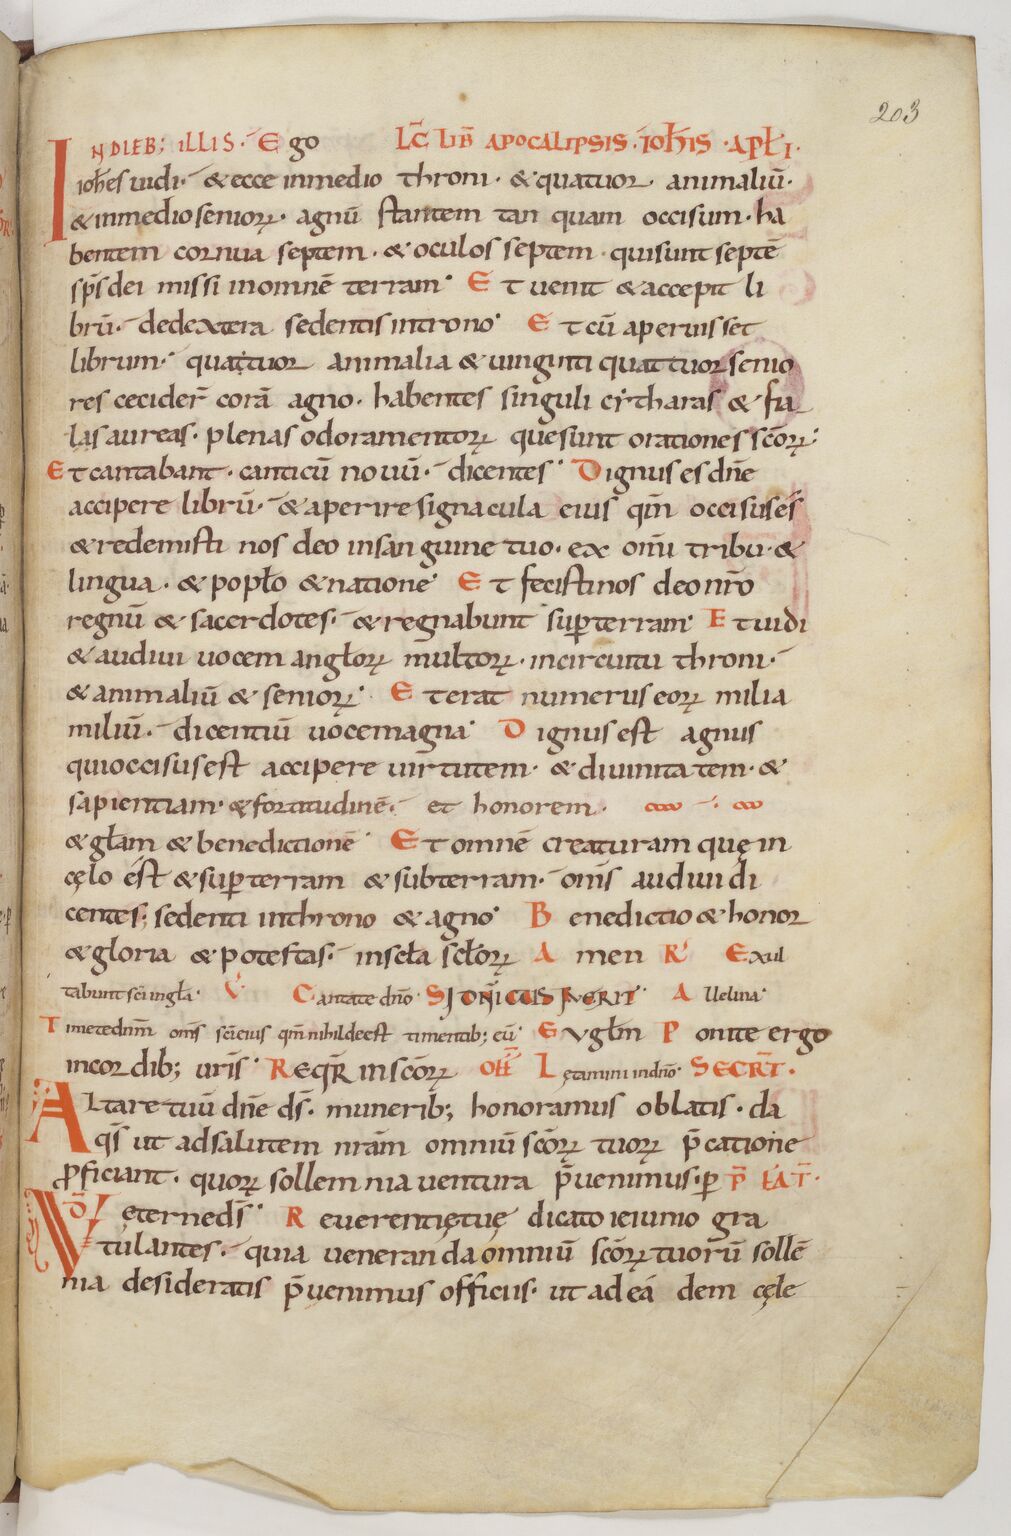 203
IN DIEB; ILLIS. Ego LC̄ LIB̄ APOCALIPSIS. IOH̄IS. APL̄I.
ioh̄es uidi. & ecce inmedio throni. & quatuor. animaliū.
& inmedio senioꝝ. agnū stantem tan quam occisum. ha
bentem cornua septem. & oculos septem. quisunt septē
sp̄s dei missi inomnē terram. Et uenit & accepit li
brū. dedextera sedentis introno. Et cū aperuisset
librum. quattuor animalia & uinginti quattuor senio
res cecider̄ corā agno. habentes singuli cytharas & fia
las aureas. plenas odoramentoꝝ que sunt orationes sc̄oꝝ.
Et cantabant. canticū nouū. dicentes. Dignus es dn̄e
accipere librū. & aperire signacula eius qm̄ occisus es
& redemisti nos deo insanguine tuo. ex om̄i tribu. &
lingua. & popl̄o & natione. Et fecistinos deo nr̄o
regnū & sacerdotes. & regnabunt sup̄ terram. Et uidi
& audiui uocem angl̄oꝝ multoꝝ. incircuitu throni.
& animaliū & senioꝝ. Et erat numerus eoꝝ milia
miliū. dicentiū uoce magna. Dignus est agnus
qui occisus est accipere uirtutem. & diuinitatem. &
sapientiam. & fortitudinē. et honorem.
& gl̄am & benedictionē. Et omnē creaturam quę in
cęlo est & sup̄ terram & subterram. om̄s audiui di
centes; sedenti inthrono & agno. Benedictio & honor
& gloria & potestas. inscl̄a scl̄oꝝ Amen R̄ Exul
tabunt sc̄i ingl̄a. V̄ Cantate dn̄o. SI DN̄ICUS FUERIT Alleluia.
Timete dnm̄ om̄s sc̄i eius qm̄ nihil deest timentib; eū. Euglm̄ Ponite ergo
incordib; uris̄. Reqr̄ in sc̄oꝝ OFF̄ Lętamini indn̄o. SECRT̄.
Altare tuū dn̄e ds̄. munerib; honoramus oblatis. da
qs̄ ut adsalutem nrām omniū sc̄oꝝ tuoꝝ p̄catione
ꝓficiant. quoꝝ sollemnia uentura p̄uenimus. ꝑ PR̄EAT̄.
VD̄ ęterne ds̄. Reuerentię tuę dicato ieiunio gra
tulantes. quia ueneranda omniū sc̄oꝝ tuorū sollē
nia desideratis p̄uenimus officiis. ut ad eādem cęle